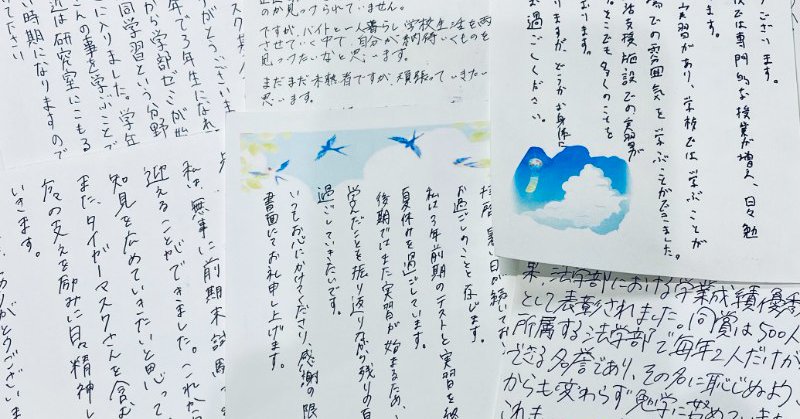 がとうございま
年でろ年生になれ
から学部ゼミが
同学習という分野
さんの事を学ぶことで
になりました。学生
近は研究室にこもる
い時期になりますので
ください
が見つけられていません。
ですが、バイトと一人暮らし、学校生活を両
させていく中で、自分が納得いくものを
見つけたいなと思います。
まだまだ未熟者ですが、頑張っていきたい
思います。
ございます。
校では専門的な授業が増え、日々勉
ます。
実習があり、学校では学ぶことが
場での雰囲気を学ぶことができました。
活支援施設での実習が
そこでも多くのことを
おります。
りますが、どうかお身体に
お過ごしください。
私は、無事に前期末試
迎えることができました。これか
知見を広めていきたいと思って
また、タイガーマスクさんを含む
々の支えを励みに日々精神し
いきます。
ありがとうござい
暑い日が続いてお
お過ごしのことと存じます。
私は3年前期のテストと実習を
夏休みを過ごしています。
後期ではまた実習が始まるため、
学んだことを振り返りながら残りの
過ごしていきたいです。
いつもお心にかけてくださり、感謝の限
書面にてお礼申し上げます。
果、法学部における学業成績優秀
として表彰されました。同賞は500人
所属する法学部で毎年2人だけが
できる名誉であり、その名に恥じぬよう、
からも変わらず勉学に努め